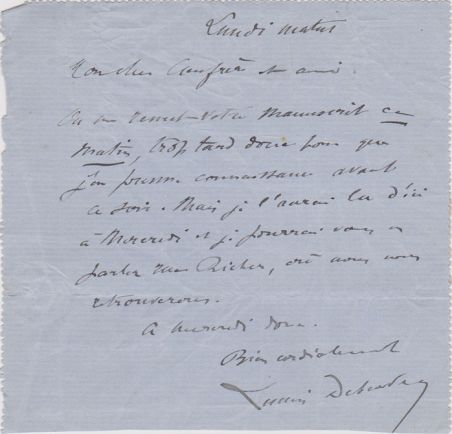 Lundi matin
Mon cher Confrère et ami.
On me remet votre manuscrit ce
matin, trop tard donc pour que
j'en prenne connaissance avant
ce soir. Mais je l'aurai lu d'ici
à Mercredi et je pourrai vous en
parler rue Richer, où nous nous
retrouverons.
A mercredi donc.
Bien cordialement